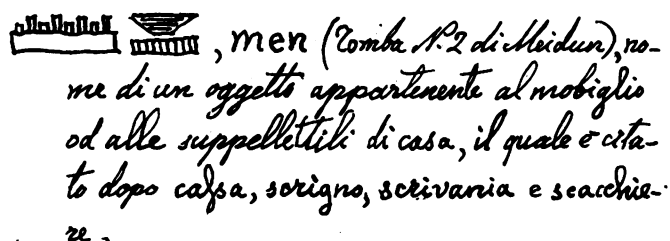 𓏠 , men (Tomba N. 2 di Meidun), no-
me di un oggetto appartenente al mobiglio
od alle suppellettili di casa, il quale è cita-
to dopo cassa, scrigno, scrivania e scacchie-
re.